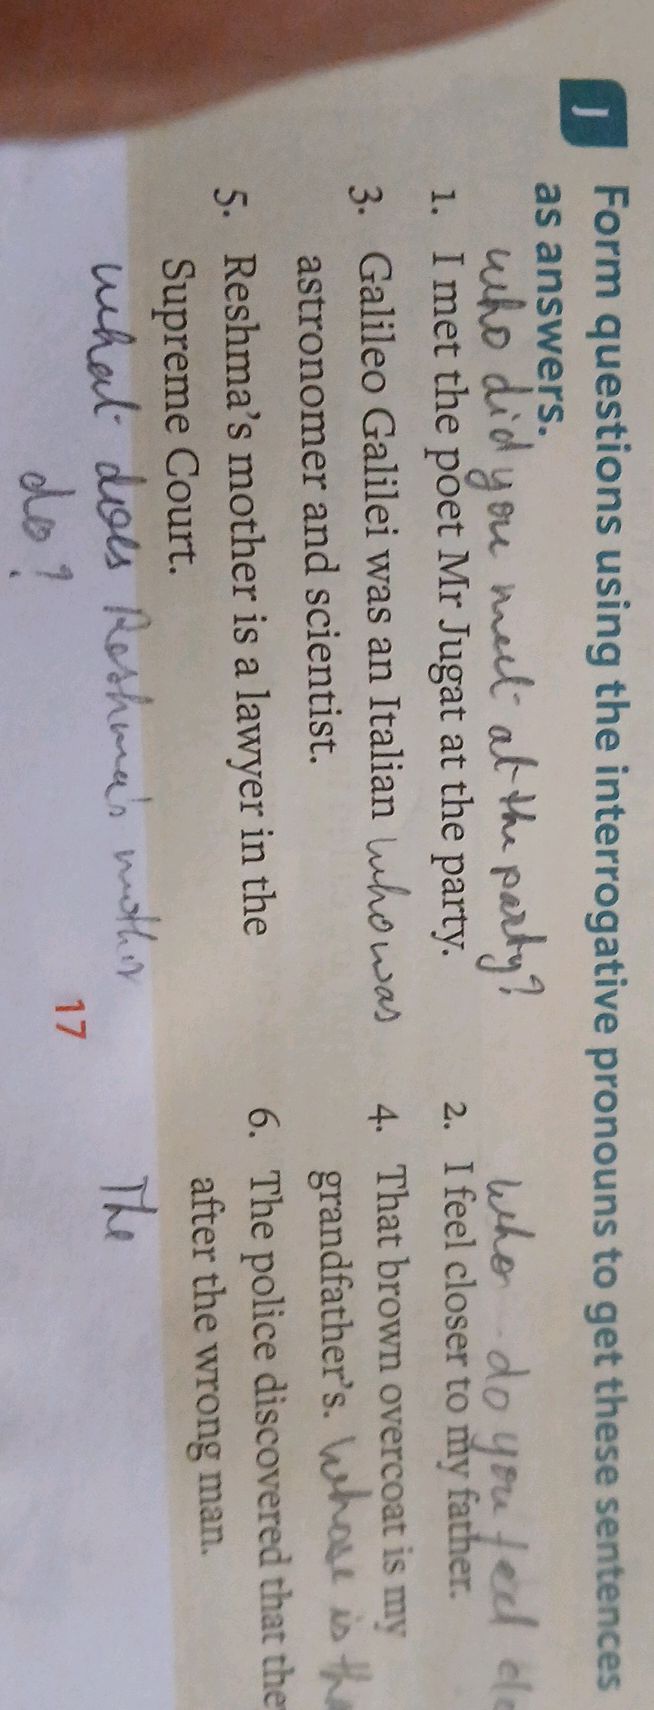 J Form questions using the interrogative pronouns to get these sentences
as answers.
who did you meet at the party?
1. I met the poet Mr Jugat at the party.
who do you feel
2. I feel closer to my father.
3. Galileo Galilei was an Italian who was
astronomer and scientist.
4. That brown overcoat is my
grandfather's. Whose is
5. Reshma's mother is a lawyer in the
Supreme Court.
what does Reshma's mother
do?
6. The police discovered that
after the wrong man.
The
17